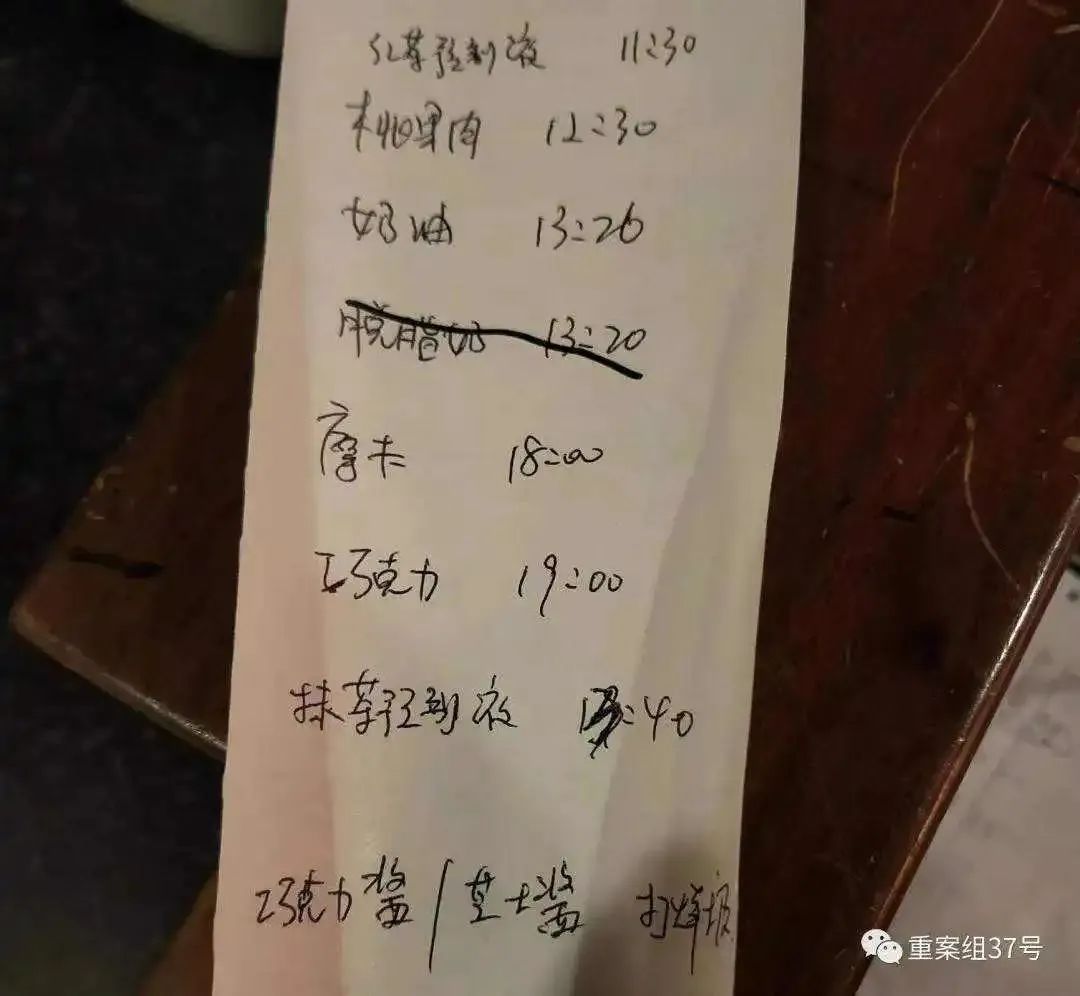 红茶轻刻液 11:30
桃果肉 12:30
奶油 13:26
脱脂奶 13:20
摩卡 18:00
巧克力 19:00
抹茶轻刻液 :40
巧克力酱/芝士酱 打烊报
重案组37号